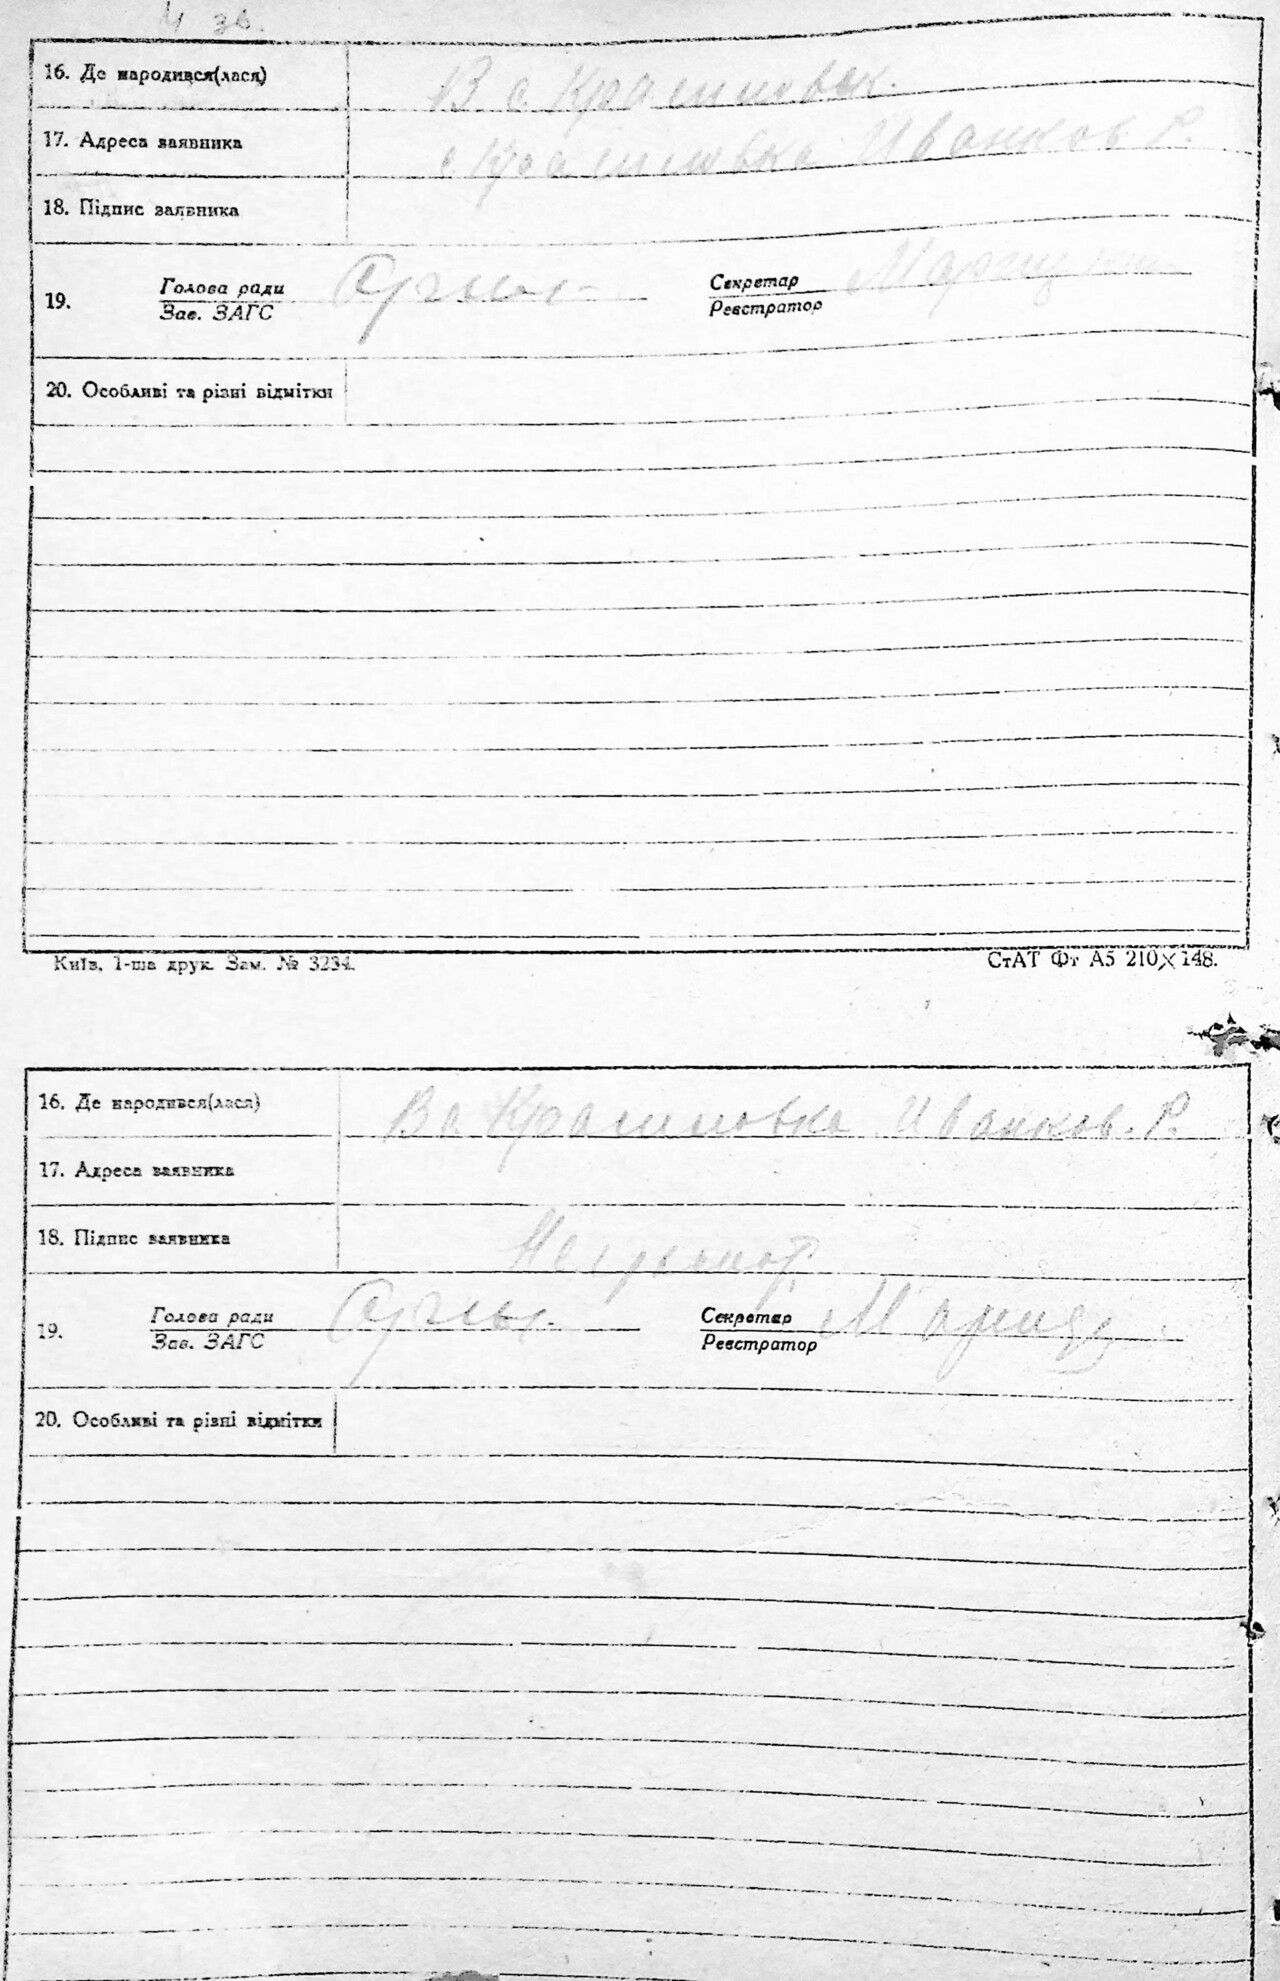 4 зв.
16. Де народився(лася) В с. Крашивк.
17. Адреса заявника с. Крашивка Иванков. Р.
18. Підпис заявника
19. Голова ради Секретар
Зав. ЗАГС Реєстратор
20. Особливі та різні відмітки
Київ, 1-ша друк. Зам. № 3234.
СтАТ Фт А5 210×148.
16. Де народився(лася) Иванков. Р.
17. Адреса заявника
18. Підпис заявника Неграмот.
19. Голова ради Секретар
Зав. ЗАГС Реєстратор
20. Особливі та різні відмітки